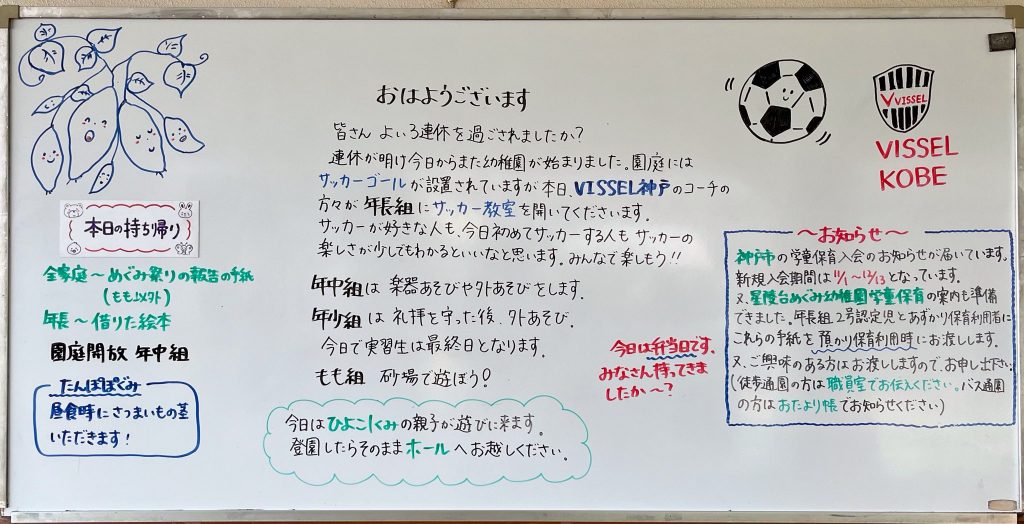 おはようございます
皆さん よい3連休を過ごされましたか?
連休が明け今日からまた幼稚園が始まりました。園庭には
サッカーゴールが設置されていますが本日、VISSEL神戸のコーチの
方々が 年長組にサッカー教室を開いてくださいます。
サッカーが好きな人も、今日初めてサッカーする人も サッカーの
楽しさが少しでもわかるといいなと思います。みんなで楽しもう!!
年中組は 楽器あそびや外あそびをします。
年少組 は 礼拝を守った後、外あそび、
今日で実習生は最終日となります。
もも組 砂場で遊ぼう!
今日はひよこぐみの親子が遊びに来ます。
登園したらそのままホールへお越しください。
本日の持ち帰り
全家庭〜めぐみ祭りの報告の手紙
(もも以外)
年長〜借りた絵本
園庭開放 年中組
たんぽぽぐみ
昼食時にさつまいもの茎
いただきます!
今日は弁当日です、
みなさん持ってきま
したか〜?
VISSEL
VISSEL
KOBE
〜お知らせ〜
神戸市の学童保育入会のお知らせが届いています。
新規入会期間は11/1〜12/13となっています。
又、星陵台めぐみ幼稚園学童保育の案内も準備
できました。年長組、2号認定児とあずかり保育利用者に
これらの手紙を預かり保育利用時にお渡しします。
又、ご興味のある方はお渡ししますので、お申し出下さい。
(徒歩通園の方は職員室でお伝えください。バス通園
の方はおたより帳でお知らせください)